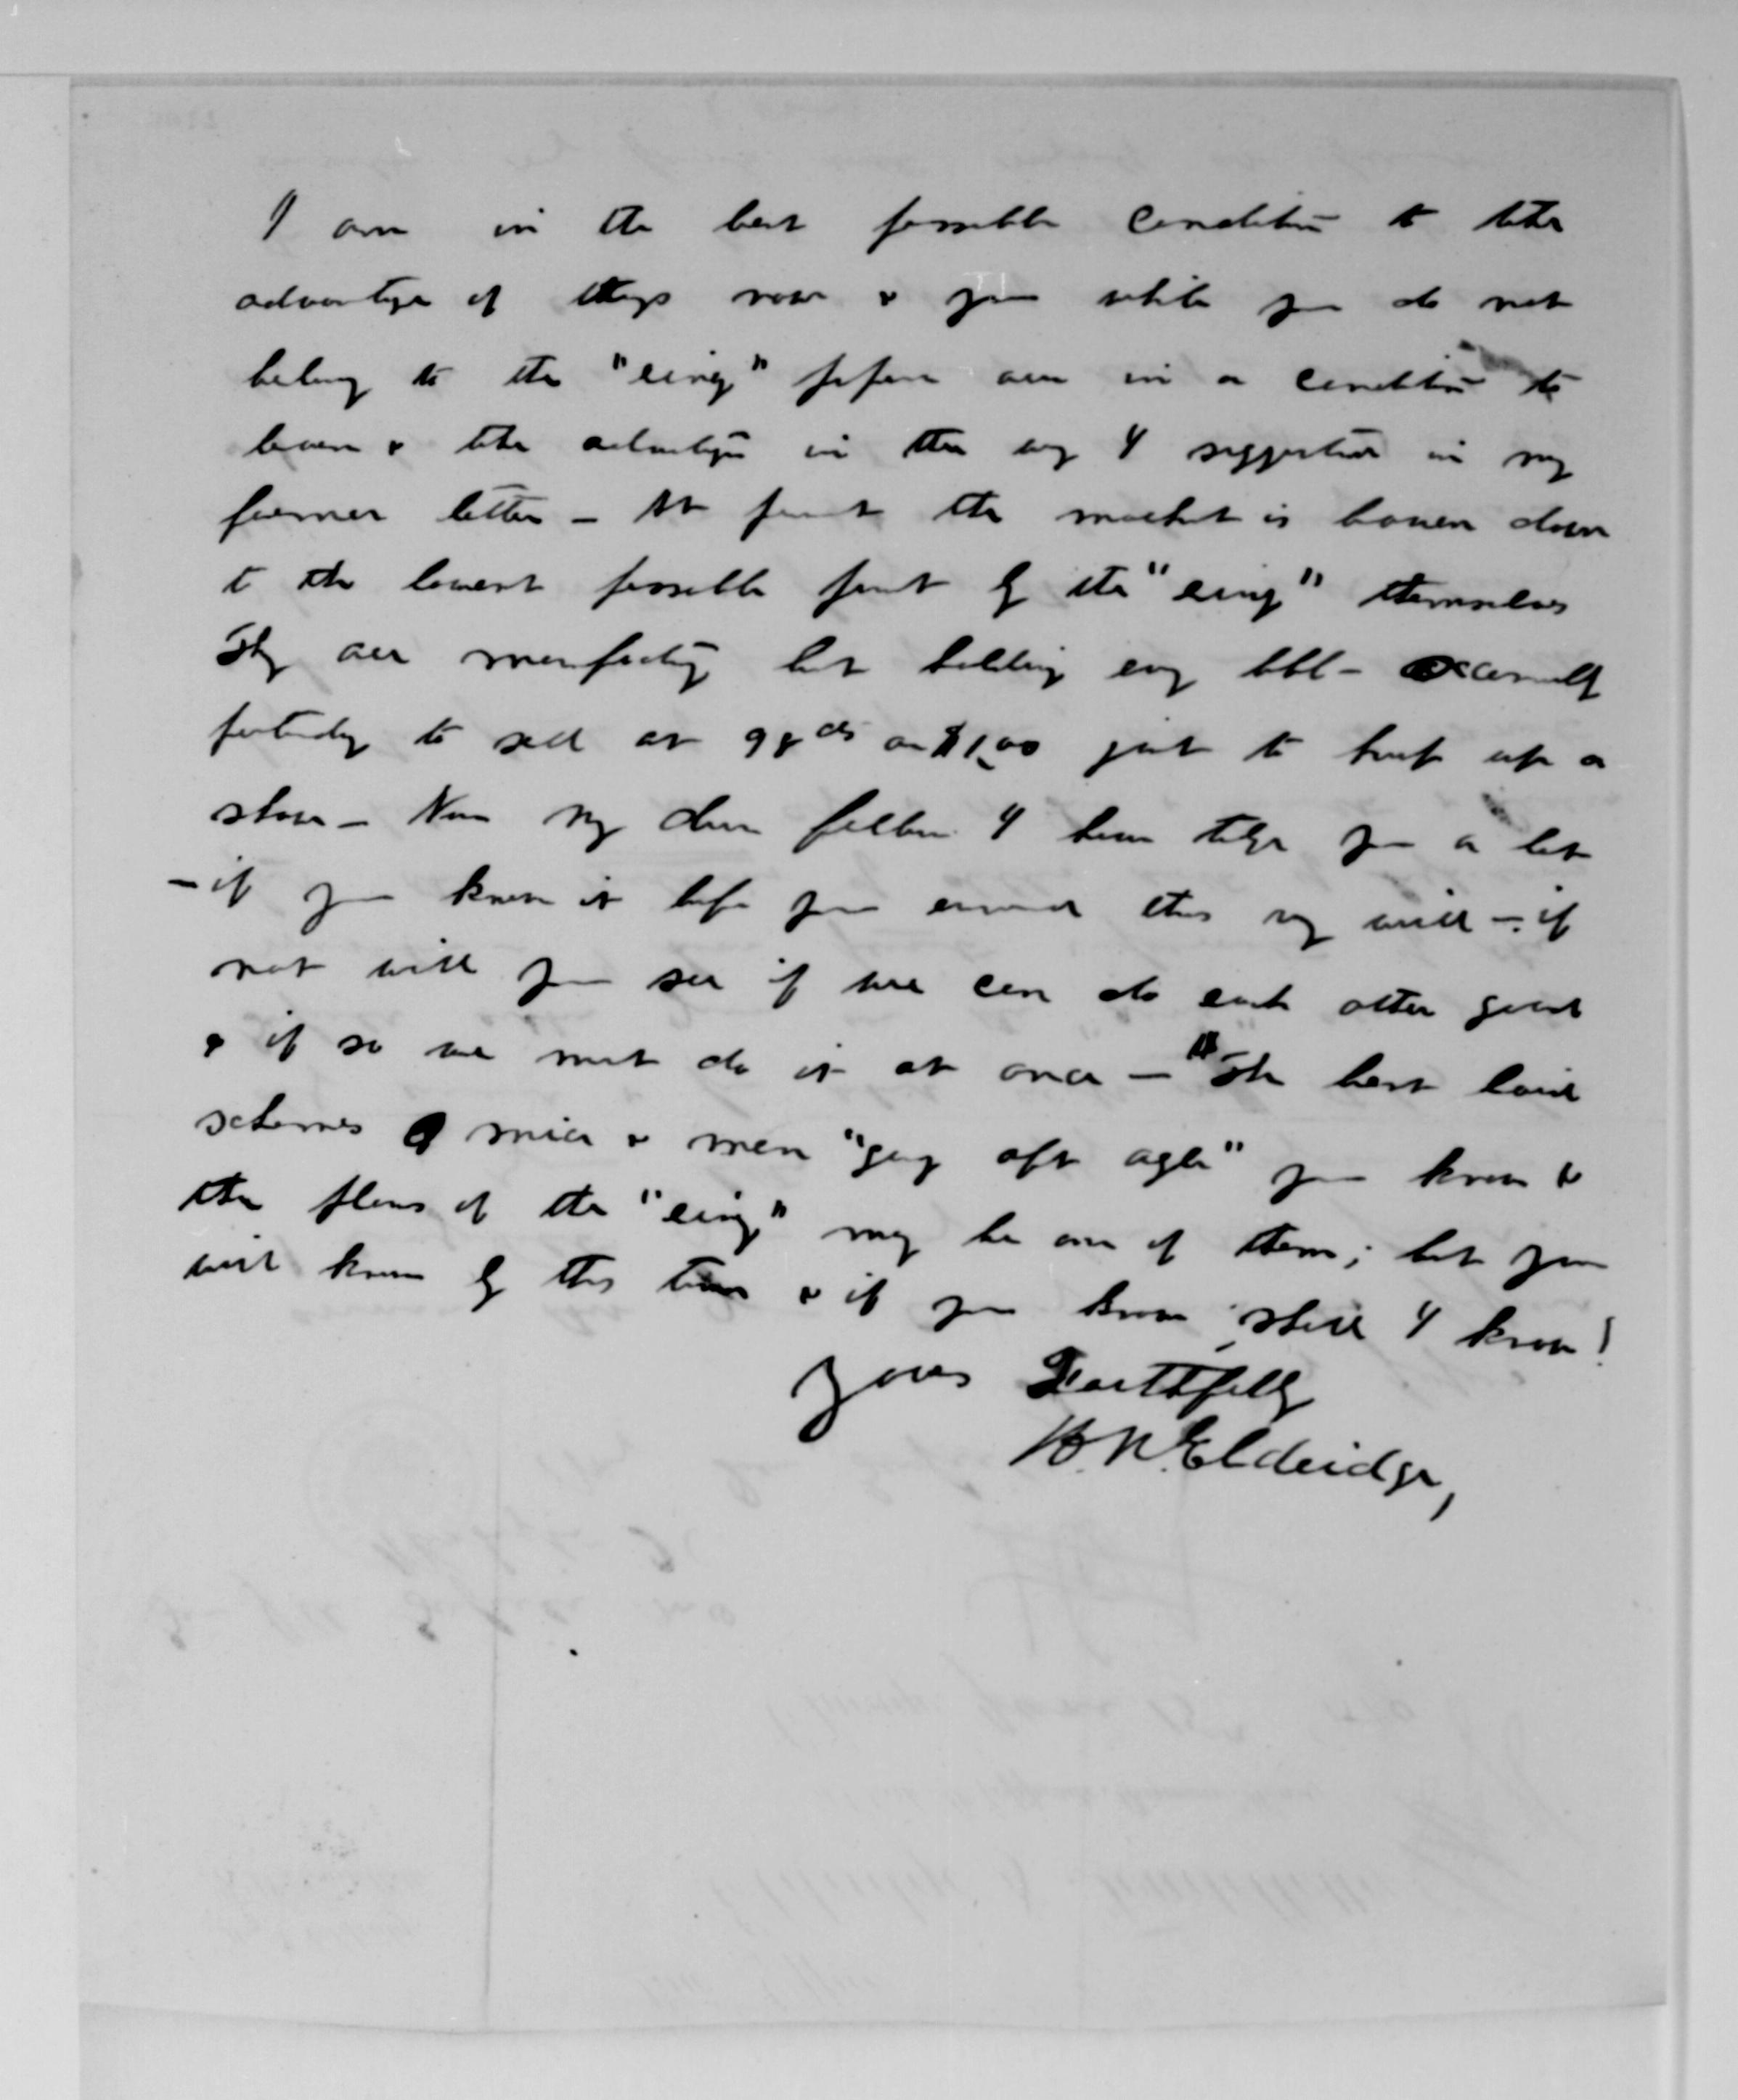 I am in the best possible condition to take
advantage of things now & you while you do not
belong to the "ring" are in a condition to
learn & take advantage in the way I suggested in my
former letter – At present the market is down
to the lowest possible point by the "ring" themselves
They are manufacturing but holding every bbl – occasionally
pretending to sell at 98 cts or $1.00 just to keep up a
show – Now my dear fellow I have telgd you a lot
– if you knew it before you received this very well – if
not will you see if we can do each other good
& if so we must do it at once – "The best laid
schemes o mice & men "gang aft aglee" you know &
the plans of the "ring" may be one of them; but you
will know by this time & if you know, shall I know!
Yours Faithfully
Eldridge,